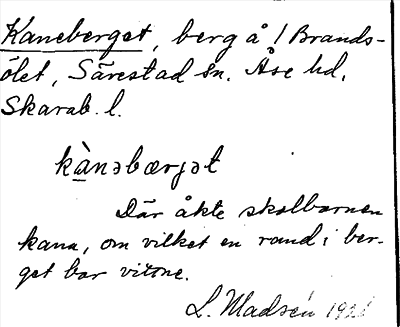 Kaneberget, berg å /Brands-
ölet, Särestad sn. Åse hd.
Skarab. l.
kànəbærjət
Där åkte skolbarnen
kana, om vilket en rand i ber-
get bar vittne.
L. Madsén